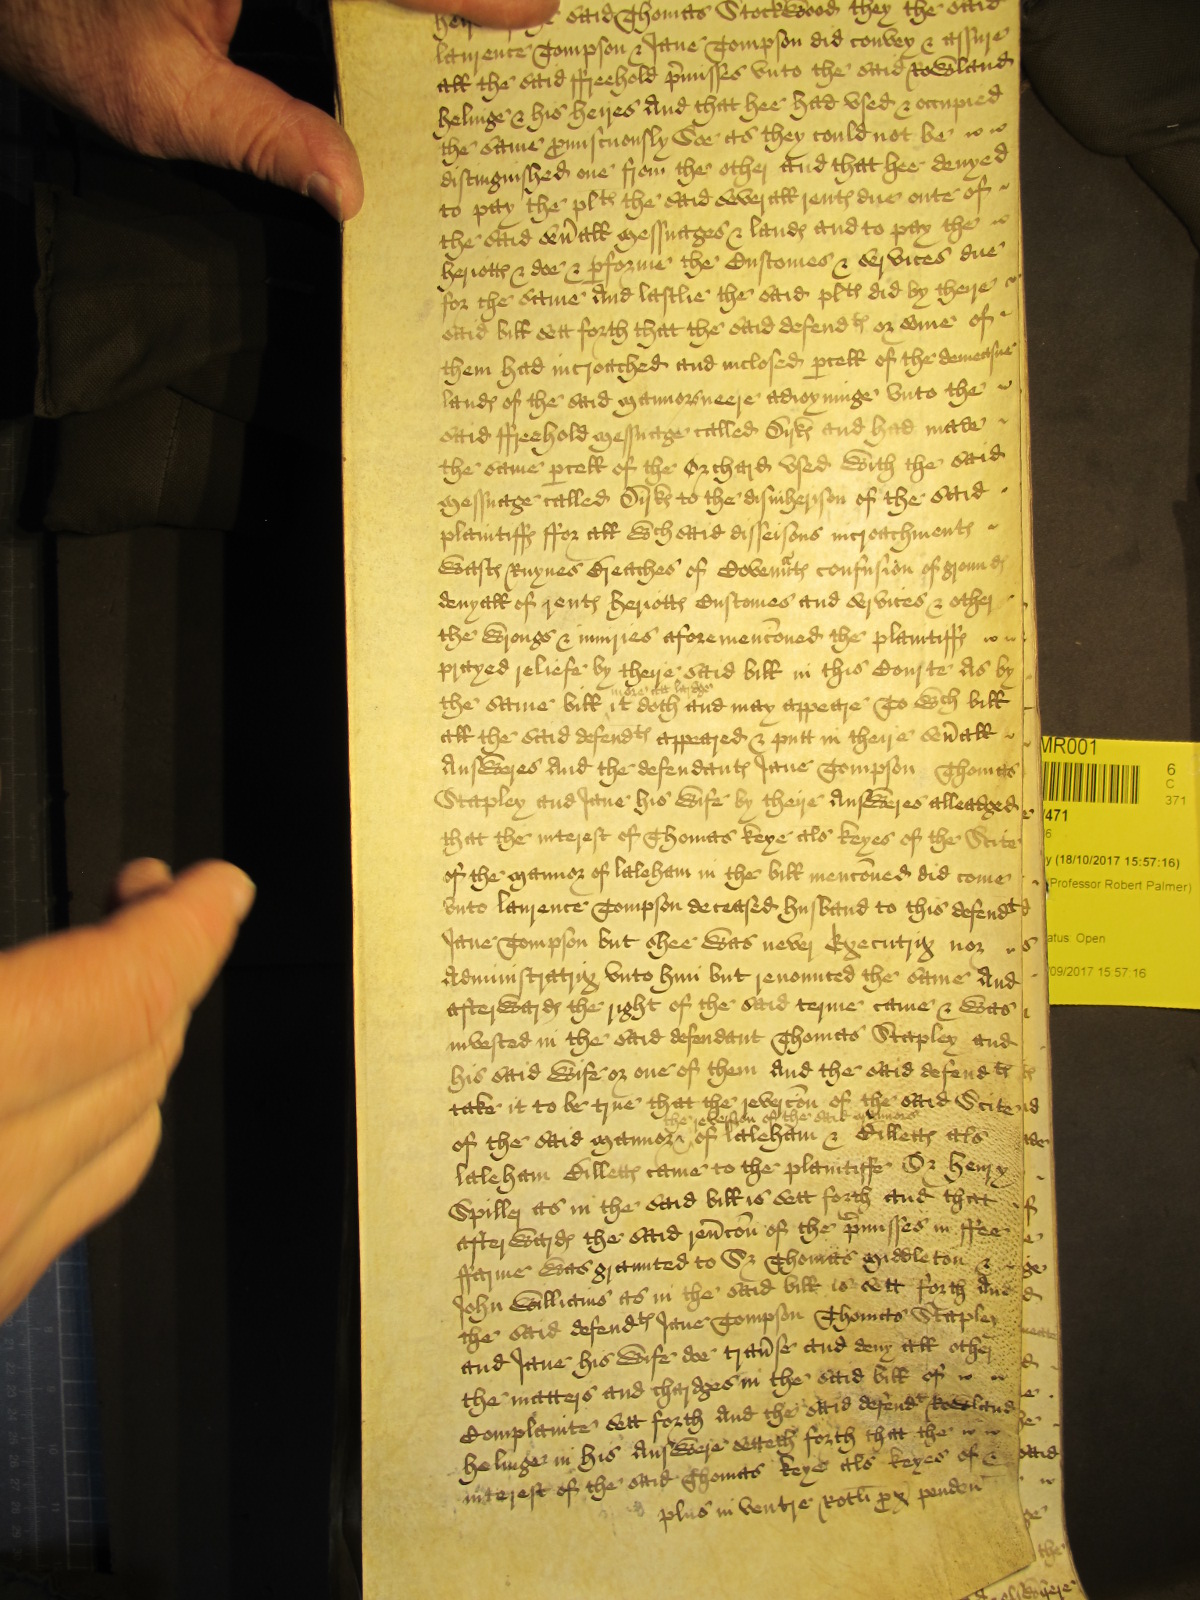 said Thomas Stockwood they the said
laurence Tompson & Jane Tompson did convey & assure
all the said ffreehold p̱misses vnto the said Rowland
helinge & his heires And that hee had vsed & occupied
the same p̱miscuously Soe as they could not be
distinguished one from the other and that hee denyed
to pay the pltes the said severall rentes due oute of
the said sev̄all messuages & landes and to pay the
heriottes & doe & p̱forme the Customes & services due
for the same And lastlie the said pltes did by theire
said bill sett forth that the said defendtes or some of
them had incroached and inclosed p̱cell of the demeasne
landes of the said mannors neere adioyninge vnto the
said ffreehold messuage called and had made
the same p̱cell of the Orchard vsed with the said
messuage called to the disinherison of the said
plaintiffes ffor all wch said disseisons incroachmentes
wastes Ruynes Breaches of Covenntes confusion of groundes
denyall of rentes heriottes Customes and services & other
the wronges & iniuries aforemenc̄oned the plaintiffes
prayed reliefe by theire said bill in this Courte As by
more att lardge
the same bill it doth and may appeare To wch bill
all the said defendtes appeared & putt in theire sev̄all
Answeres And the defendantes Jane Tompson Thomas
Stapley and Jane his wife by theire Answeres alleadged
that the interest of Thomas Keye als Keyes of the Scite
of the mannor of laleham in the bill menc̄oned did come
vnto laurence Tompson deceased husband to this defendt
Jane Tompson but shee was never Executrix nor
Administratrix vnto him but renounced the same And
afterwardes the right of the said terme came & was
invested in the said defendant Thomas Stapley and
his said wife or one of them And the said defendtes
take it to be true that the reverc̄on of the said Scite
the reversion of the said mannors
of the said mannor & of laleham & Billettes als
laleham Billettes came to the plaintiffe Sr Henry
Spiller as in the said bill is sett forth and that
afterwardes the said rev̄c̄on of the p̱misses in ffee
ffarme was graunted to Sr Thomas Middleton &
John Williams as in the said bill is sett forth And
the said defendtes Jane Tompson Thomas Stapley
and Jane his wife doe trav̄se and deny all other
the matters and chardges in the said bill of
Complainte sett forth And the said defendt Rowland
helinge in his Answere setteth forth that the
interest of the said Thomas Keye als Keyes of
plus in ventre Rotli
MR001
6
C
371
/471
6
y (18/10/2017 15:57:16)
(Professor Robert Palmer)
atus: Open
/09/2017 15:57:16